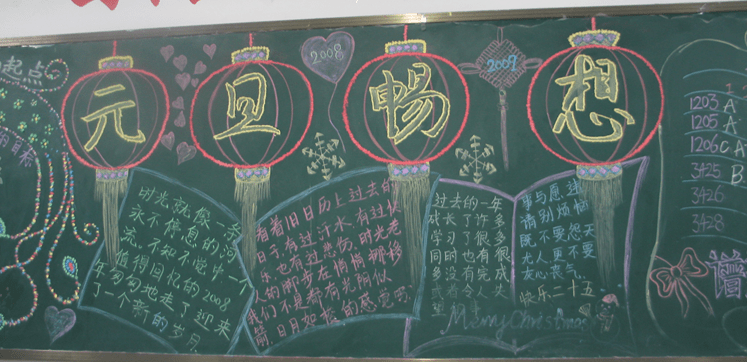 元旦畅想
2008
2009
起点
时光就像一条
永不停息的河
流，不知不觉中，一个
值得回忆的2008
年匆匆地走了迎来
了一个新的岁月
看着旧日历上过去的
日子，有过汗水，有过快
乐，也有过悲伤，时光老
人的脚步在悄悄挪移
我们不是都有光阴似
箭，日月如梭的感觉吗？
过去的一年
成长了许多
学习了很多
同时也有很
多没有完成
或者令人失
望
事与愿违
请别烦恼
既不要怨天
尤人更不要
灰心丧气。
快乐二十五
Merry Christmas
1203 A
1205 A
1206 C A
3425 B
3426
3428